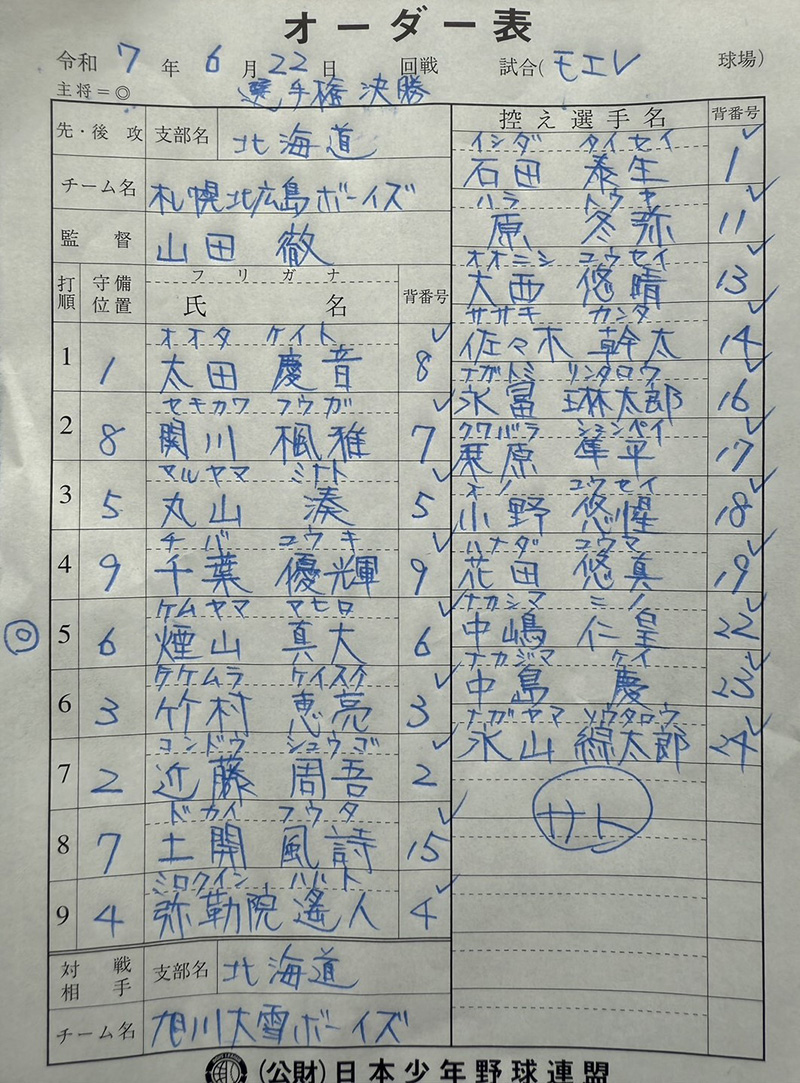 オーダー表
令和 7 年 6 月 22 日 回戦 試合(モエレ 球場)
主将=◎ 選手権 決勝
先・後 攻 支部名 北海道
チーム名 札幌北広島ボーイズ
監 督 山田 徹
打順 守備位置 フリガナ 氏 名 背番号
オオタ ケイト
1 1 太田 慶音 8
セキカワ フウガ
2 8 関川 楓雅 7
マルヤマ ミナト
3 5 丸山 湊 5
チバ ユウキ
4 9 千葉 優輝 9
ケムヤマ マヒロ
◎ 5 6 煙山 真大 6
タケムラ ケイスケ
6 3 竹村 恵亮 3
コンドウ シュウゴ
7 2 近藤 周吾 2
ドカイ フウタ
8 7 土開 風詩 15
ミロクイン ハルト
9 4 弥勒院 遙人 4
対戦相手 支部名 北海道
チーム名 旭川大雪ボーイズ
控え選手名 背番号
イシダ タイセイ
石田 泰生 1
ハラ トウヤ
原 冬弥 11
オオニシ ユウセイ
大西 悠晴 13
ササキ カンタ
佐々木 幹太 14
ナガトミ リンタロウ
永冨 琳太郎 16
クワバラ シュンペイ
桒原 隼平 17
オノ ユウセイ
小野 悠惺 18
ハナダ ユウマ
花田 悠真 19
ナカシマ ミノ
中嶋 仁皇 22
ナカジマ ケイ
中島 慶 23
ナガヤマ ソウタロウ
永山 綜太郎 24
サト
(公財)日本少年野球連盟